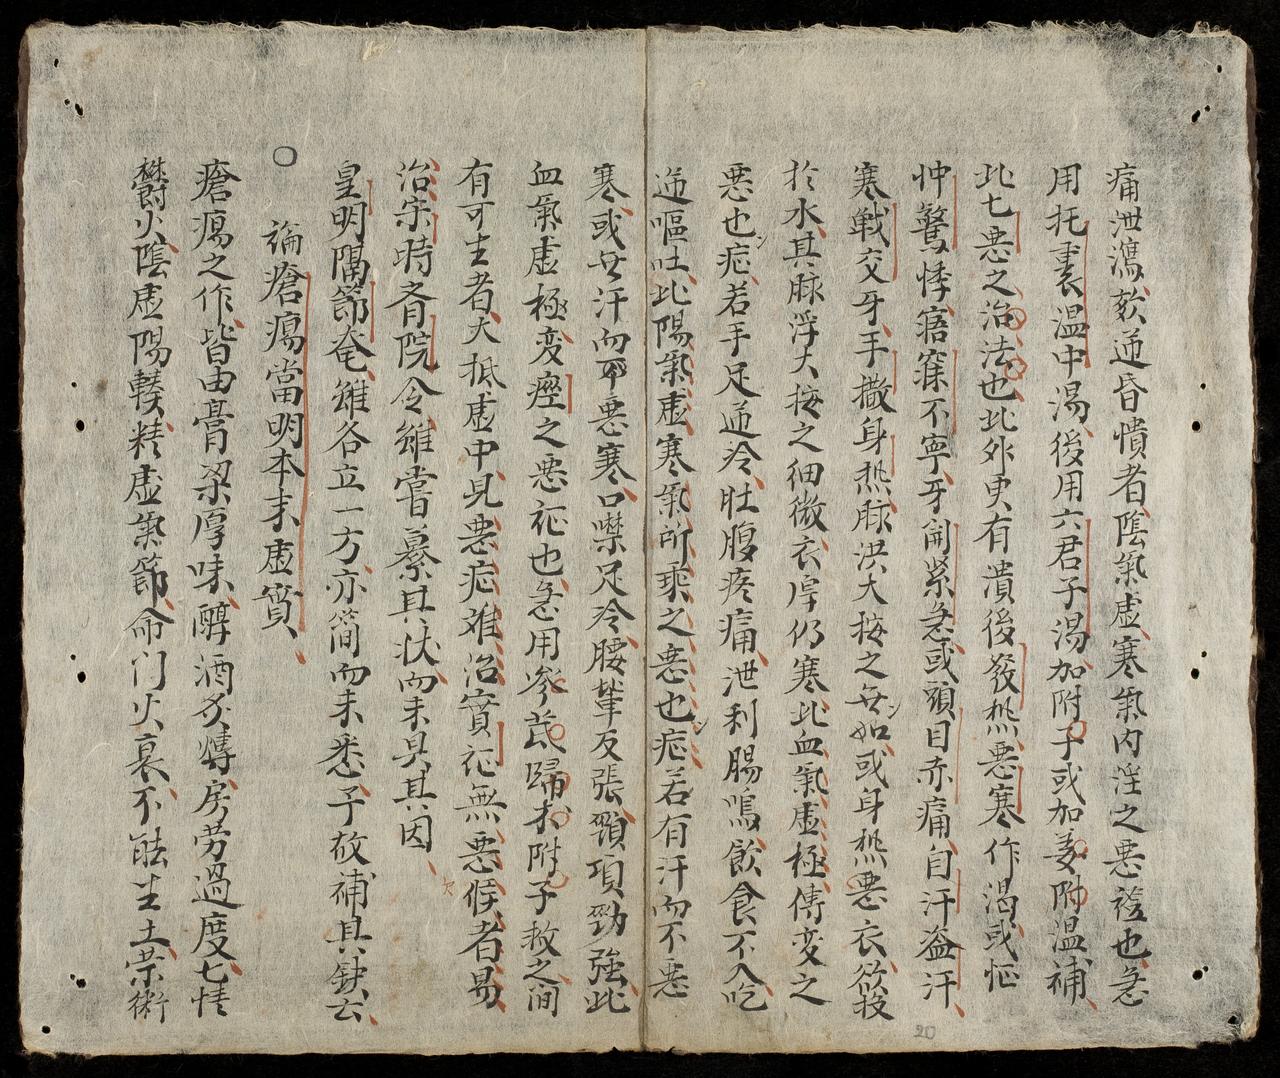 痛泄瀉欬逆昏憒者陰氣虛寒氣内淫之悪𧘲也急
用托裏温中湯後用六君子湯加附子或加姜附温補
此七悪之治法也此外更有潰後發热悪寒作渴或怔
忡驚悸寤寐不寧牙関緊急或頭目赤痛自汗盗汗
寒戦交牙手撒身热脉洪大按之無如或身热悪衣欲投
扵水其脉浮大按之细微衣厚仍寒此血氣虚極傳变之
悪也症若手足逆冷肚腹疼痛泄利腸鳴飲食不入吃
逆嘔吐此陽氣虚寒氣所乘之悪也症若有汗而不悪
寒或無汗而悪寒口噤足冷腰軰反張頸項勁強此
血氣虚極变痙之悪症也急用參芪歸术附子救之间
有可生者大抵虚中見悪症难治實症無悪候者易
治宋時斉院令雖嘗纂其状而未具其因
皇明隔節奄雖各立一方亦简而未悉予故補其缺云
○
論瘡瘍當明本末虚實
瘡瘍之作皆由膏梁厚味醇酒炙煿房劳過度七情
欝火陰虚陽輳精虚氣節命门火衰不能生土荣衛